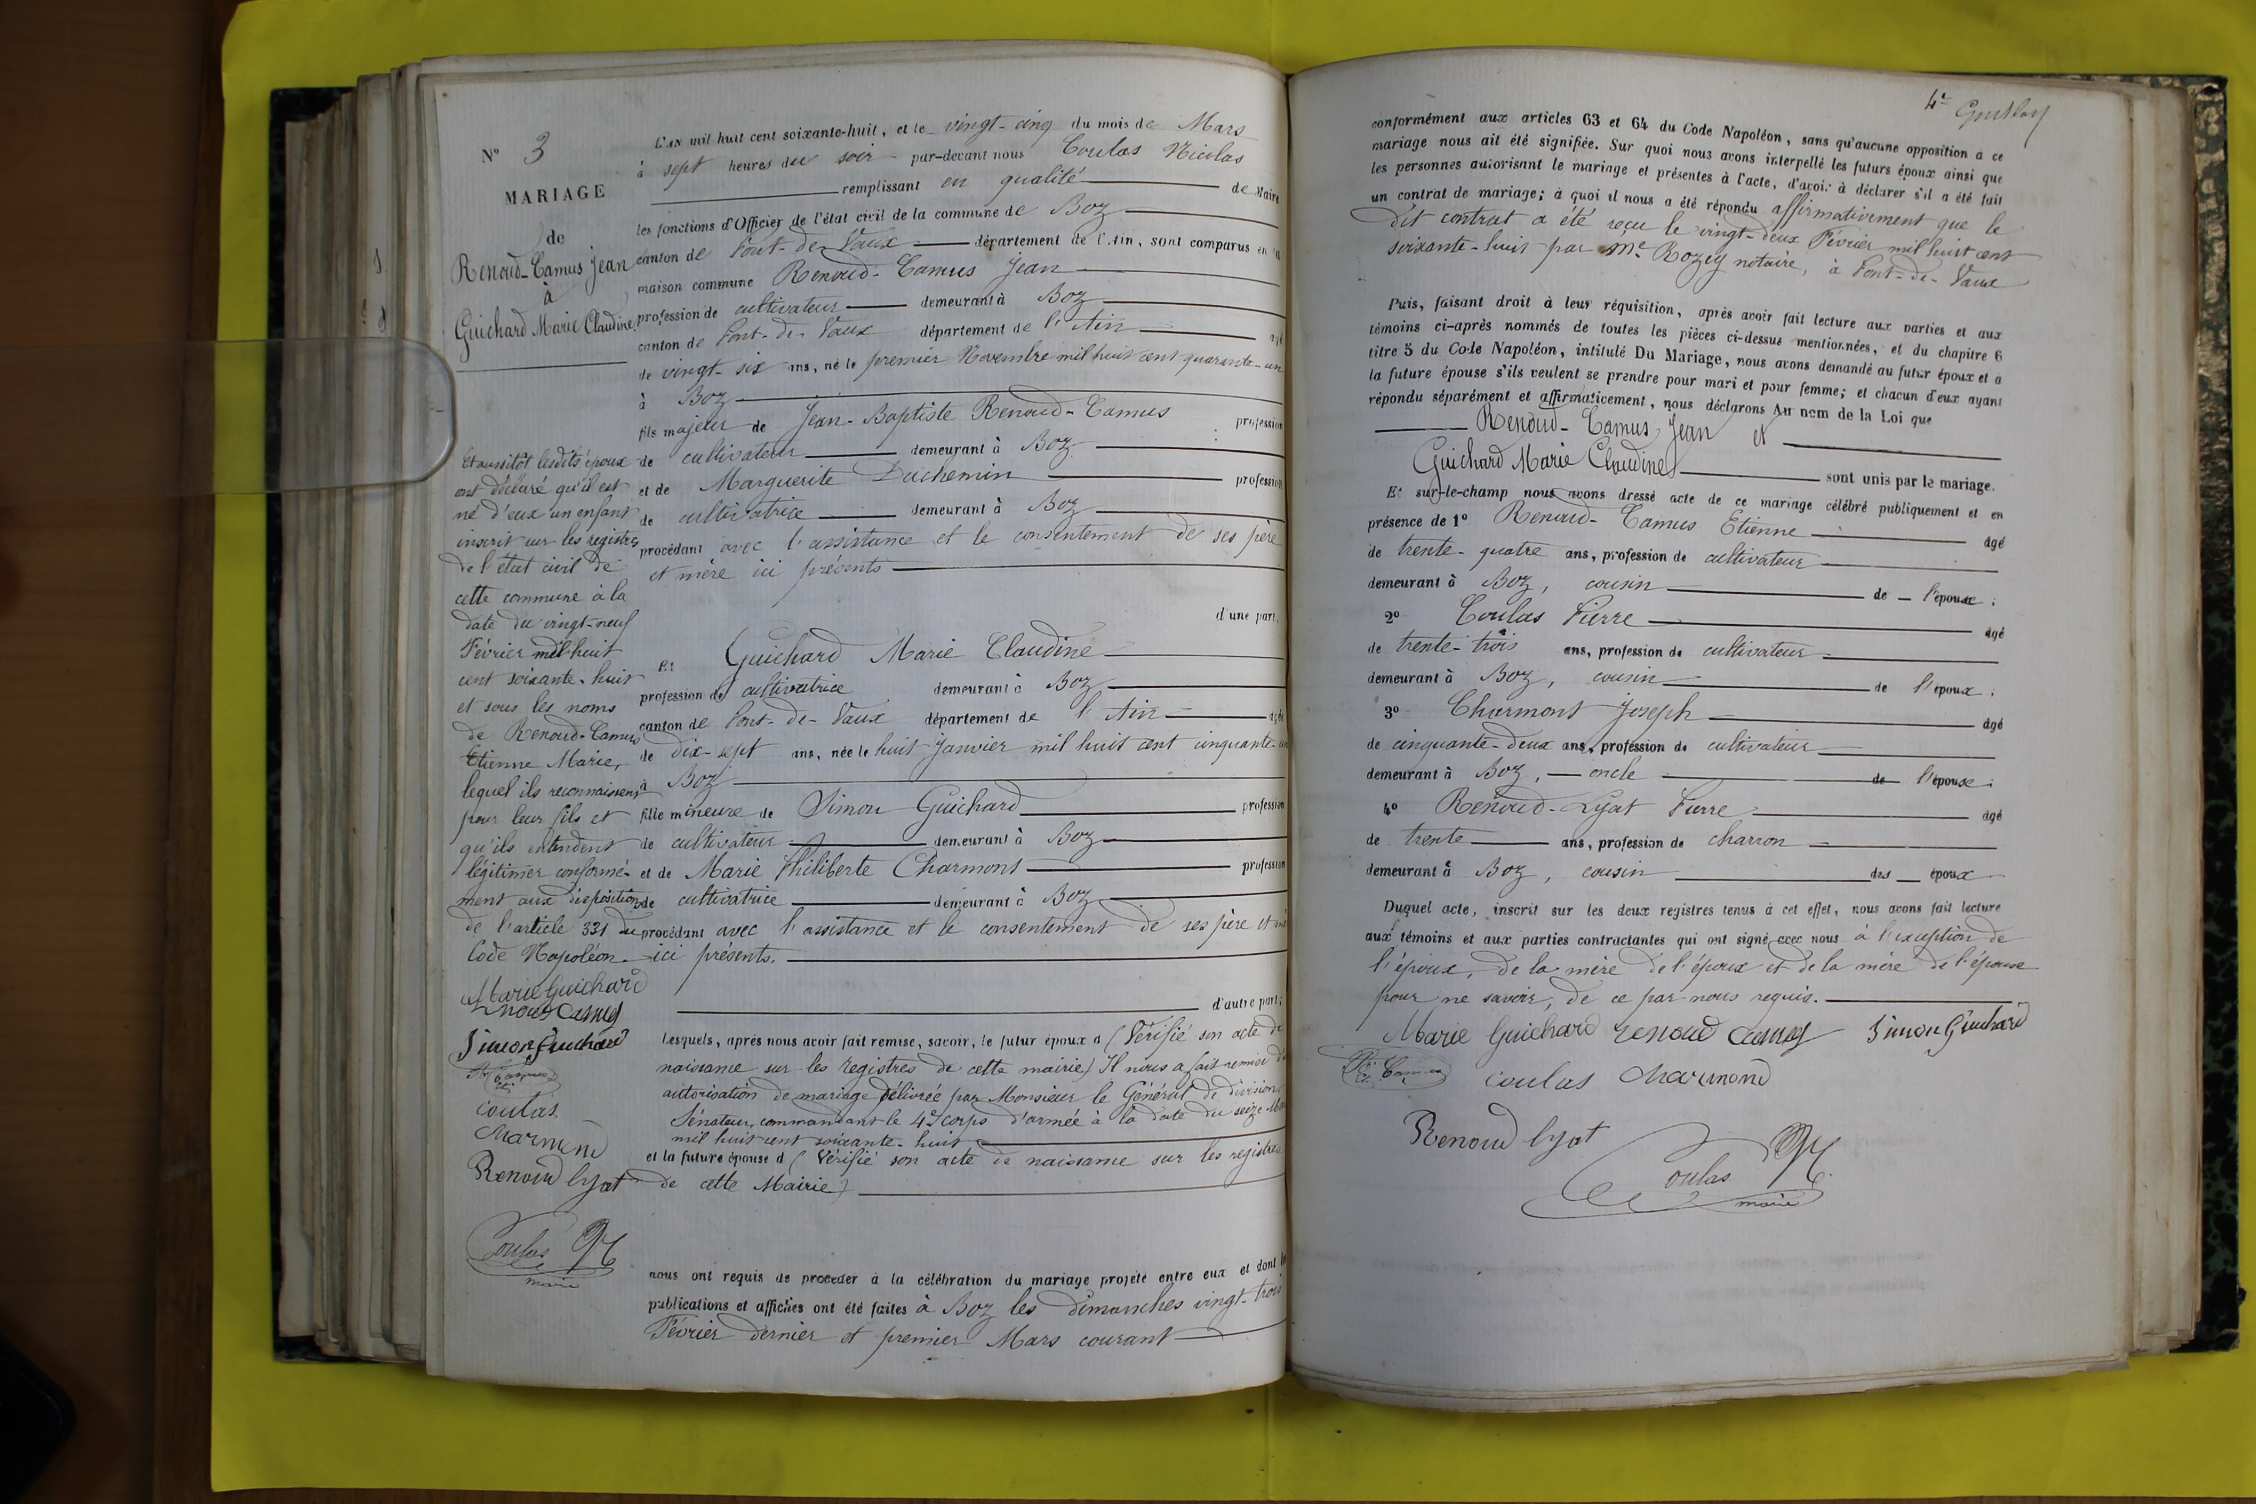 N° 3
MARIAGE
de
Renoud-Camus Jean
à
Guichard Marie Claudine.
Et aussitôt lesdits époux
ont déclaré qu'il est
né d'eux un enfant
inscrit sur les registres
de l'état civil de
cette commune à la
date du vingt-neuf
Février mil huit
cent soixante-huit
et sous les noms
de Renoud-Camus
Etienne Marie,
lequel ils reconnaissent
pour leur fils et
qu'ils entendent
légitimer conformé-
ment aux dispositions
de l'article 331 du
Code Napoléon.
Marie Guichard
renoud Camus
Simon Guichard
coulas
Charmond
Renoud lyat
Coulas N
maire
L'AN mil huit cent soixante-huit, et le vingt-cinq du mois de Mars
à sept heures du soir par-devant nous Coulas Nicolas
remplissant en qualité de Maire
les fonctions d'Officier de l'état civil de la commune de Boz
canton de Pont-de-Vaux département de l'Ain, sont comparus en la
maison commune Renoud-Camus Jean
profession de cultivateur demeurant à Boz
canton de Pont-de-Vaux département de l'Ain agé
de vingt-six ans, né le premier Novembre mil huit cent quarante-un
à Boz
fils majeur de Jean-Baptiste Renoud-Camus profession
de cultivateur demeurant à Boz
et de Marguerite Duchemin profession
de cultivatrice demeurant à Boz
procédant avec l'assistance et le consentement de ses père
et mère ici présents
d'une part.
Et Guichard Marie Claudine
profession de cultivatrice demeurant à Boz
canton de Pont-de-Vaux département de l'Ain agée
de dix-sept ans, née le huit Janvier mil huit cent cinquante-un
à Boz
fille mineure de Simon Guichard profession
de cultivateur demeurant à Boz
et de Marie Philiberte Charmont profession
de cultivatrice demeurant à Boz
procédant avec l'assistance et le consentement de ses père et mère
ici présents.
d'autre part;
Lesquels, après nous avoir fait remise, savoir, le futur époux d (Vérifié son acte de
naissance sur les registres de cette mairie) Il nous a fait remise d'
autorisation de mariage délivrée par Monsieur le Général de division
Sénateur, commandant le 4e corps d'armée à la date du seize Mars
mil huit cent soixante-huit
et la future épouse d (Vérifié son acte de naissance sur les registres
de cette Mairie)
nous ont requis de procéder à la célébration du mariage projeté entre eux et dont les
publications et affiches ont été faites à Boz les dimanches vingt-trois
Février dernier et premier Mars courant
4e
conformément aux articles 63 et 64 du Code Napoléon, sans qu'aucune opposition à ce
mariage nous ait été signifiée. Sur quoi nous avons interpellé les futurs époux ainsi que
les personnes autorisant le mariage et présentes à l'acte, d'avoir à déclarer s'il a été fait
un contrat de mariage; à quoi il nous a été répondu affirmativement que le
dit contrat a été reçu le vingt-deux Février mil huit cent
soixante-huit par Me Rozey notaire, à Pont-de-Vaux
Puis, faisant droit à leur réquisition, après avoir fait lecture aux parties et aux
témoins ci-après nommés de toutes les pièces ci-dessus mentionnées, et du chapitre 6
titre 5 du Code Napoléon, intitulé Du Mariage, nous avons demandé au futur époux et à
la future épouse s'ils veulent se prendre pour mari et pour femme; et chacun d'eux ayant
répondu séparément et affirmativement, nous déclarons Au nom de la Loi que
Renoud-Camus Jean et
Guichard Marie Claudine sont unis par le mariage.
Et sur-le-champ nous avons dressé acte de ce mariage célébré publiquement et en
présence de 1° Renoud-Camus Etienne agé
de trente-quatre ans, profession de cultivateur
demeurant à Boz, cousin de l'époux;
2° Coulas Pierre agé
de trente-trois ans, profession de cultivateur
demeurant à Boz, cousin de l'époux;
3° Charmont Joseph agé
de cinquante-deux ans, profession de cultivateur
demeurant à Boz, oncle de l'épouse;
4° Renoud-Lyat Pierre agé
de trente ans, profession de charron
demeurant à Boz, cousin des époux
Duquel acte, inscrit sur les deux registres tenus à cet effet, nous avons fait lecture
aux témoins et aux parties contractantes qui ont signé avec nous à l'exception de
l'époux, de la mère de l'époux et de la mère de l'épouse
pour ne savoir, de ce par nous requis.
Marie Guichard renoud Camus Simon Guichard
coulas Charmond
Renoud lyat
Coulas N
maire